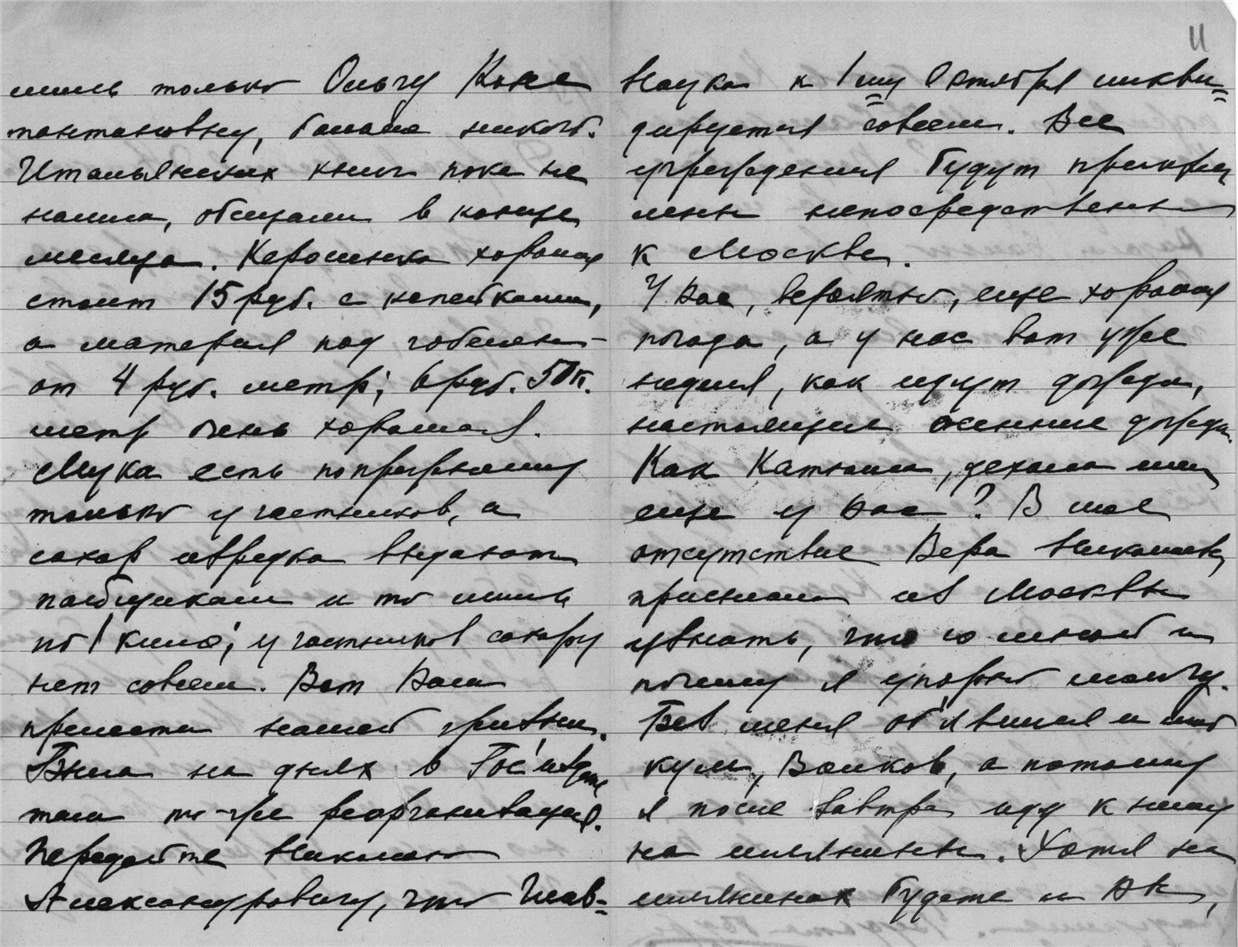 11
лишь только Ольгу Конс
тантиновну, больше никого.
Итальянских книг пока не
нашла, обещали в конце
месяца. Керосинка хорошая
стоит 15 руб. с копейками,
а материя под гобелен -
от 4 руб. метр; 6 руб. 50 к.
метр очень хорошая.
Мука есть по прежнему
только у частников, а
сахар изредка выдают
пайщикам и то лишь
по 1 кило; у частников сахару
нет совсем. Вот Вам
прелести нашей жизни.
Была на днях в Гос'издате
там то-же реорганизация.
Передайте Николаю
Александровичу, что Глав-
Наука к 1му Октября ликви-
дируется совсем. Все
учреждения будут прикреп
лены непосредственно
к Москве.
У Вас, вероятно, еще хорошая
погода, а у нас вот уже
неделя, как идут дожди,
настоящие осенние дожди.
Как Катюша, уехала или
еще у Вас? В мое
отсутствие Вера Николаевна
приезжала из Москвы
узнать, что со мной и
почему я упорно молчу.
Без меня об'явился и мой
кум, Волков, а потому
я после завтра иду к нему
на именины. Хотя на
именинах будете и ВК,